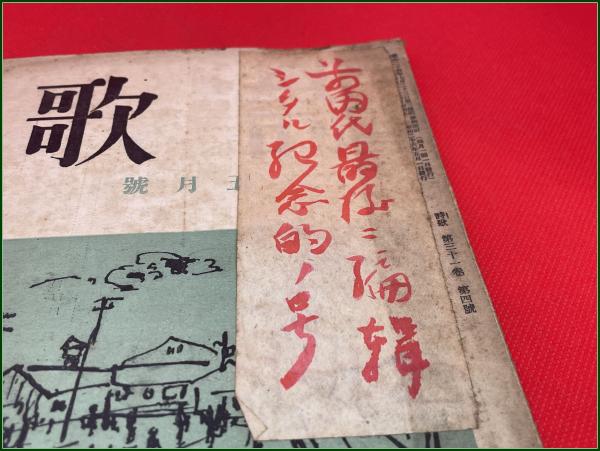 歌
月號
前田氏最後ニ編輯
シタル紀念的ノ号
詩歌 第三十一卷 第四號